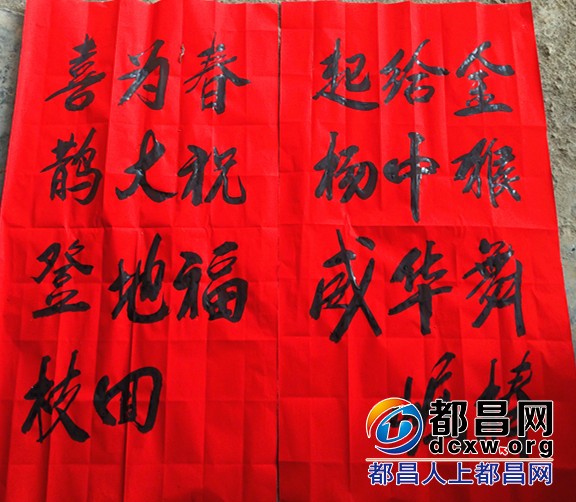 金猴舞棒
给中华振
起杨威
喜鹊登枝
为大地回
春祝福
都昌网
dcxw.org
都昌人上都昌网